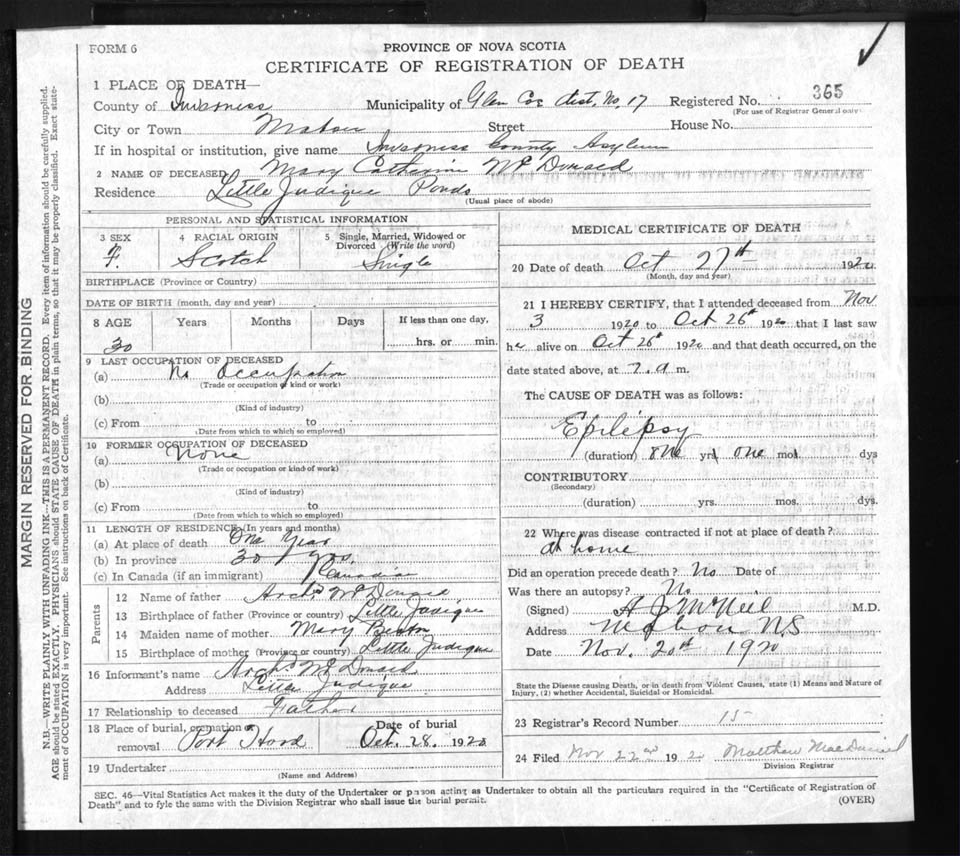 FORM 6
PROVINCE OF NOVA SCOTIA
CERTIFICATE OF REGISTRATION OF DEATH
1 PLACE OF DEATH—
County of Inverness Municipality of Glen Coe dist. No. 17 Registered No. 365
(For use of Registrar General only)
City or Town Mabou Street House No.
If in hospital or institution, give name Inverness County Asylum
2 NAME OF DECEASED Mary Catherine McDonald
Residence Little Judique Ponds
(Usual place of abode)
PERSONAL AND STATISTICAL INFORMATION
3 SEX 4 RACIAL ORIGIN 5 Single, Married, Widowed or Divorced (Write the word)
F. Scotch Single
BIRTHPLACE (Province or Country)
DATE OF BIRTH (month, day and year)
8 AGE Years Months Days If less than one day,
30 hrs. or min.
9 LAST OCCUPATION OF DECEASED
(a) No Occupation
(Trade or occupation or kind or work)
(b)
(Kind of industry)
(c) From to
(Date from which to which so employed)
10 FORMER OCCUPATION OF DECEASED
(a) None
(Trade or occupation or kind of work)
(b)
(Kind of industry)
(c) From to
(Date from which to which so employed)
11 LENGTH OF RESIDENCE (In years and months)
(a) At place of death One Year
(b) In province 30 yrs.
(c) In Canada (if an immigrant) Canadian
Parents
12 Name of father Archd McDonald
13 Birthplace of father (Province or country) Little Judique
14 Maiden name of mother Mary
15 Birthplace of mother (Province or country) Little Judique
16 Informant's name Archd McDonald
Address Little Judique
17 Relationship to deceased Father
18 Place of burial, cremation or removal Port Hood Date of burial Oct. 28. 1920
19 Undertaker
(Name and Address)
MEDICAL CERTIFICATE OF DEATH
20 Date of death Oct 27th 1920
(Month, day and year)
21 I HEREBY CERTIFY, that I attended deceased from Nov
3 1920 to Oct 26th 1920 that I last saw
her alive on Oct 26th 1920 and that death occurred, on the
date stated above, at 7.a m.
The CAUSE OF DEATH was as follows:
Epilepsy
(duration) one yrs one mos. dys
CONTRIBUTORY
(Secondary)
(duration) yrs. mos. dys.
22 Where was disease contracted if not at place of death?
at home
Did an operation precede death? No Date of
Was there an autopsy? No
(Signed) A J McNeil M.D.
Address Mabou N.S
Date Nov. 20th 1920
State the Disease causing Death, or in death from Violent Causes, state (1) Means and Nature of
Injury, (2) whether Accidental, Suicidal or Homicidal.
23 Registrar's Record Number 15
24 Filed Nov 22nd 192 Matthew MacDonald
Division Registrar
SEC. 46—Vital Statistics Act makes it the duty of the Undertaker or person acting as Undertaker to obtain all the particulars required in the "Certificate of Registration of
Death" and to fyle the same with the Division Registrar who shall issue the burial permit.
(OVER)
MARGIN RESERVED FOR BINDING
N.B.—WRITE PLAINLY WITH UNFADING INK—THIS IS A PERMANENT RECORD. Every item of information should be carefully supplied.
AGE should be stated EXACTLY. PHYSICIANS should STATE CAUSE OF DEATH in plain terms, so that it may be properly classified. Exact state-
ment of OCCUPATION is very important. See instructions on back of Certificate.